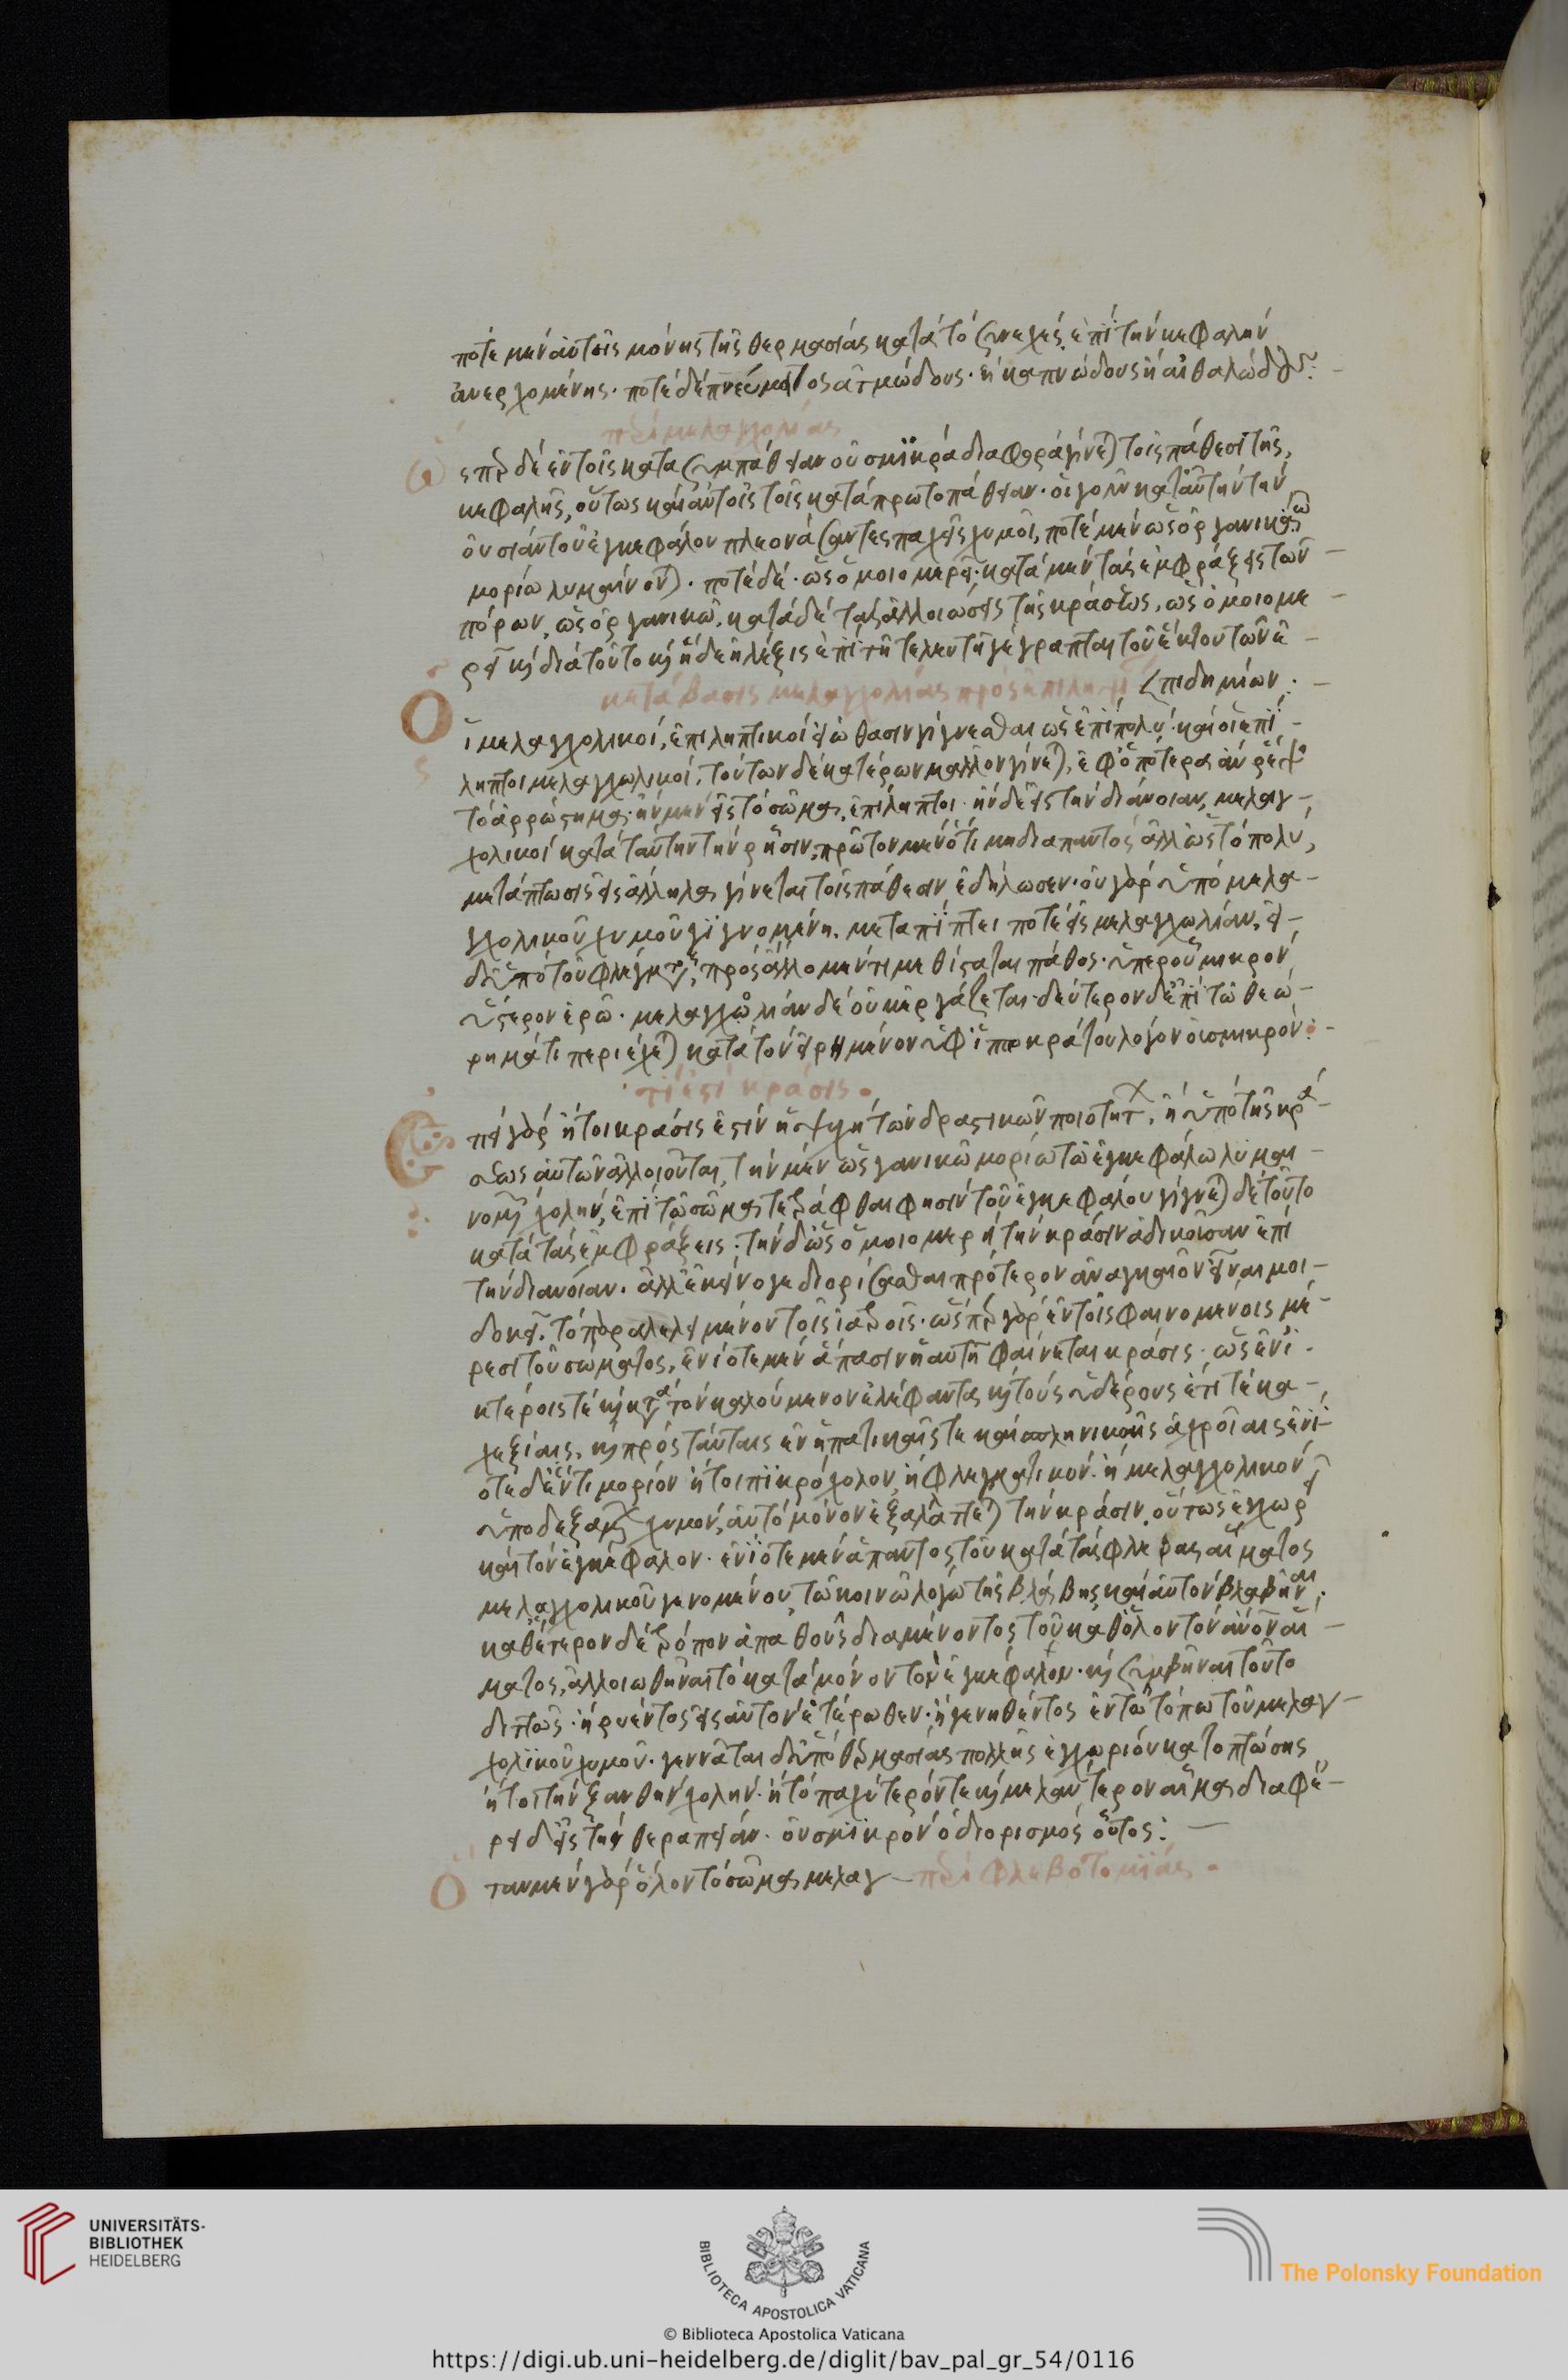 ποτὲ μὲν αὐτοῖς μόνης τῆς θερμασίας κατὰ τὸ συνεχές ἐπὶ τὴν κεφαλὴν
ἀνερχομένης· ποτὲ δὲ πνεύματος ἀτμώδους· ἢ καπνώδους ἢ αἰθαλώδους:
περὶ μελαγχολίας
ὥσπερ δὲ ἐν τοῖς κατὰ συμπάθειαν οὐ σμικρὰ διαφορὰ γίνεται τοῖς πάθεσι τῆς
κεφαλῆς, οὕτως καὶ αὐτοῖς τοῖς κατὰ πρωτοπάθειαν· οἱ γοῦν κατ' αὐτὴν τὴν
οὐσίαν τοῦ ἐγκεφάλου πλεονάσαντες παχεῖς χυμοί, ποτὲ μὲν ὡς ὀργανικῷ
μορίῳ λυμαίνονται· ποτὲ δὲ· ὡς ὁμοιομερεῖ· κατὰ μὲν τὰς ἐμφράξεις τῶν
πόρων, ὡς ὀργανικῶ, κατὰ δὲ τὰς ἀλλοιώσεις τῆς κράσεως, ὡς ὁμοιομε
ρεῖ καὶ διὰ τοῦτο καὶ ἥδε ἡ λέξις ἐπὶ τῆ τελευτῆ γέγραπται τοῦ ἕκτου τῶν ἐ
πιδημιῶν:
κατάβασις μελαγχολίας πρὸς ἐπιληψί
Οἱ μελαγχολικοί, ἐπιληπτικοὶ εἰώθασιν γίγνεσθαι ὡς ἐπὶ πολύ· καὶ οἱ ἐπί
ληπτοι μελαγχωλικοί· τούτων δὲ κατέρων μᾶλλον γίνεται, ἐφ' ὁπότερα ἂν ῥέψη
τὸ ἀρρώστημα· ἢν μὲν εἰς τὸ σῶμα, ἐπίληπτοι· ἢν δὲ εἰς τὴν διάνοιαν, μελαγ
χολικοί κατὰ ταύτην τὴν ῥῆσιν, πρῶτον μὲν ὅτι μὴ διαπαντὸς ἀλλ' ὡς τὸ πολὺ,
μετάπτωσις εἰς ἄλληλα γίνεται τοῖς πάθεσιν ἐδήλωσεν· οὐ γὰρ ὑπὸ μελα
γχολικοῦ χυμοῦ γιγνομένη. μεταπίπτει ποτὲ εἰς μελαγχωλίαν, ἡ
δ' ὑπὸ τοῦ φλέγματος, πρὸς ἄλλο μέν τι μεθίσταται πάθος· ὑπὲρ οὗ μικρὸν
ὕστερον ἐρῶ· μελαγχολίαν δὲ οὐκ ἐργάζεται· δεύτερον δ' ἐπὶ τῶ θεω
ρήματι περιέχεται κατὰ τὸν εἰρημένον ὑφ' ἱπποκράτου λόγον οὐ σμικρόν:
τί ἐστὶ κράσις
Ἐπεὶ γὰρ ἤτοι κράσις ἐστὶν ἡ ψυχὴ τῶν δραστικῶν ποιοτήτων, ἢ ὑπὸ τῆς κρά
σεως αὐτῶν ἀλλοιοῦται, τὴν μὲν ὡς γανικῶ μορίω τῶ ἐγκεφάλω λυμαι
νομένην χολήν, ἐπὶ τῶ σῶμα τετράφθαι φησὶν τοῦ ἐγκεφάλου γίγνεται δὲ τοῦτο
κατὰ τὰς ἐμφράξεις· τὴν δ' ὡς ὁμοιομερῆ τὴν κράσιν ἀδικοῦσαν ἐπὶ
τὴν διάνοιαν. ἀλλ' ἐκεῖνο γε διορίσασθαι πρότερον ἀναγκαῖον εἶναι μοι
δοκεῖ. τὸ παραλελειμένον τοῖς ἰατροῖς· ὥσπερ γὰρ ἐν τοῖς φαινομένοις μέ
ρεσι τοῦ σώματος, ἐνίοτε μὲν ἅπασιν ἡ αὐτὴ φαίνεται κράσις· ὡς ἐν ἰ
κτέροις τὲ καὶ κατὰ τὸν καλούμενον ἐλέφαντα καὶ τοὺς ὑδέρους ἔτι τὲ κα
χεξίαις, καὶ πρὸς ταύταις ἐν ἡπατικαῖς τε καὶ σπληνικαῖς ἀχροίαις ἐνί
οτε δ' ἕν τι μόριον ἤτοι πικρόχολον, ἢ φλεγματικόν· ἢ μελαγχολικὸν
ὑποδεξάμενον χυμόν, αὐτὸ μόνον ἐξαλλάττεται τὴν κράσιν, οὕτως ἐγχωρεῖ
καὶ τὸν ἐγκέφαλον· ἐνίοτε μὲν ἅπαντος τοῦ κατὰ τὰς φλέβας αἵματος
μελαγχολικοῦ γενομένου, τῶ κοινῶ λόγω τῆς βλάβης καὶ αὐτὸν βλαβῆναι·
καθ' ἕτερον δὲ τρόπον ἀπαθοῦς διαμένοντος τοῦ καθ' ὅλον τὸν ἄνον αἵ
ματος, ἀλλοιωθῆναι τὸ κατὰ μόνον τὸν ἐγκέφαλον· καὶ συμβῆναι τοῦτο
διττῶς· ἢ ῥυέντος εἰς αὐτὸν ἑτέρωθεν· ἢ γενηθέντος ἐν τῶ τόπω τοῦ μελαγ
χολικοῦ χυμοῦ· γεννᾶται δ' ὑπὸ θερμασίας πολλῆς ἐγχωρίου κατοπτώσης
ἤτοι τὴν ξανθὴν χολήν· ἢ τὸ παχύτερόν τε καὶ μελαντερον αἷμα διαφέ
ρει δ' εἰς τὴν θεραπείαν· οὐ σμικρὸν ὁ διορισμὸς οὗτος:
Ὅταν μὲν γὰρ ὅλον τὸ σῶμα μελαγ περὶ φλεβοτομίας
UNIVERSITÄTS-
BIBLIOTHEK
HEIDELBERG
BIBLIOTECA APOSTOLICA VATICANA
The Polonsky Foundation
© Biblioteca Apostolica Vaticana
https://digi.ub.uni-heidelberg.de/diglit/bav_pal_gr_54/0116